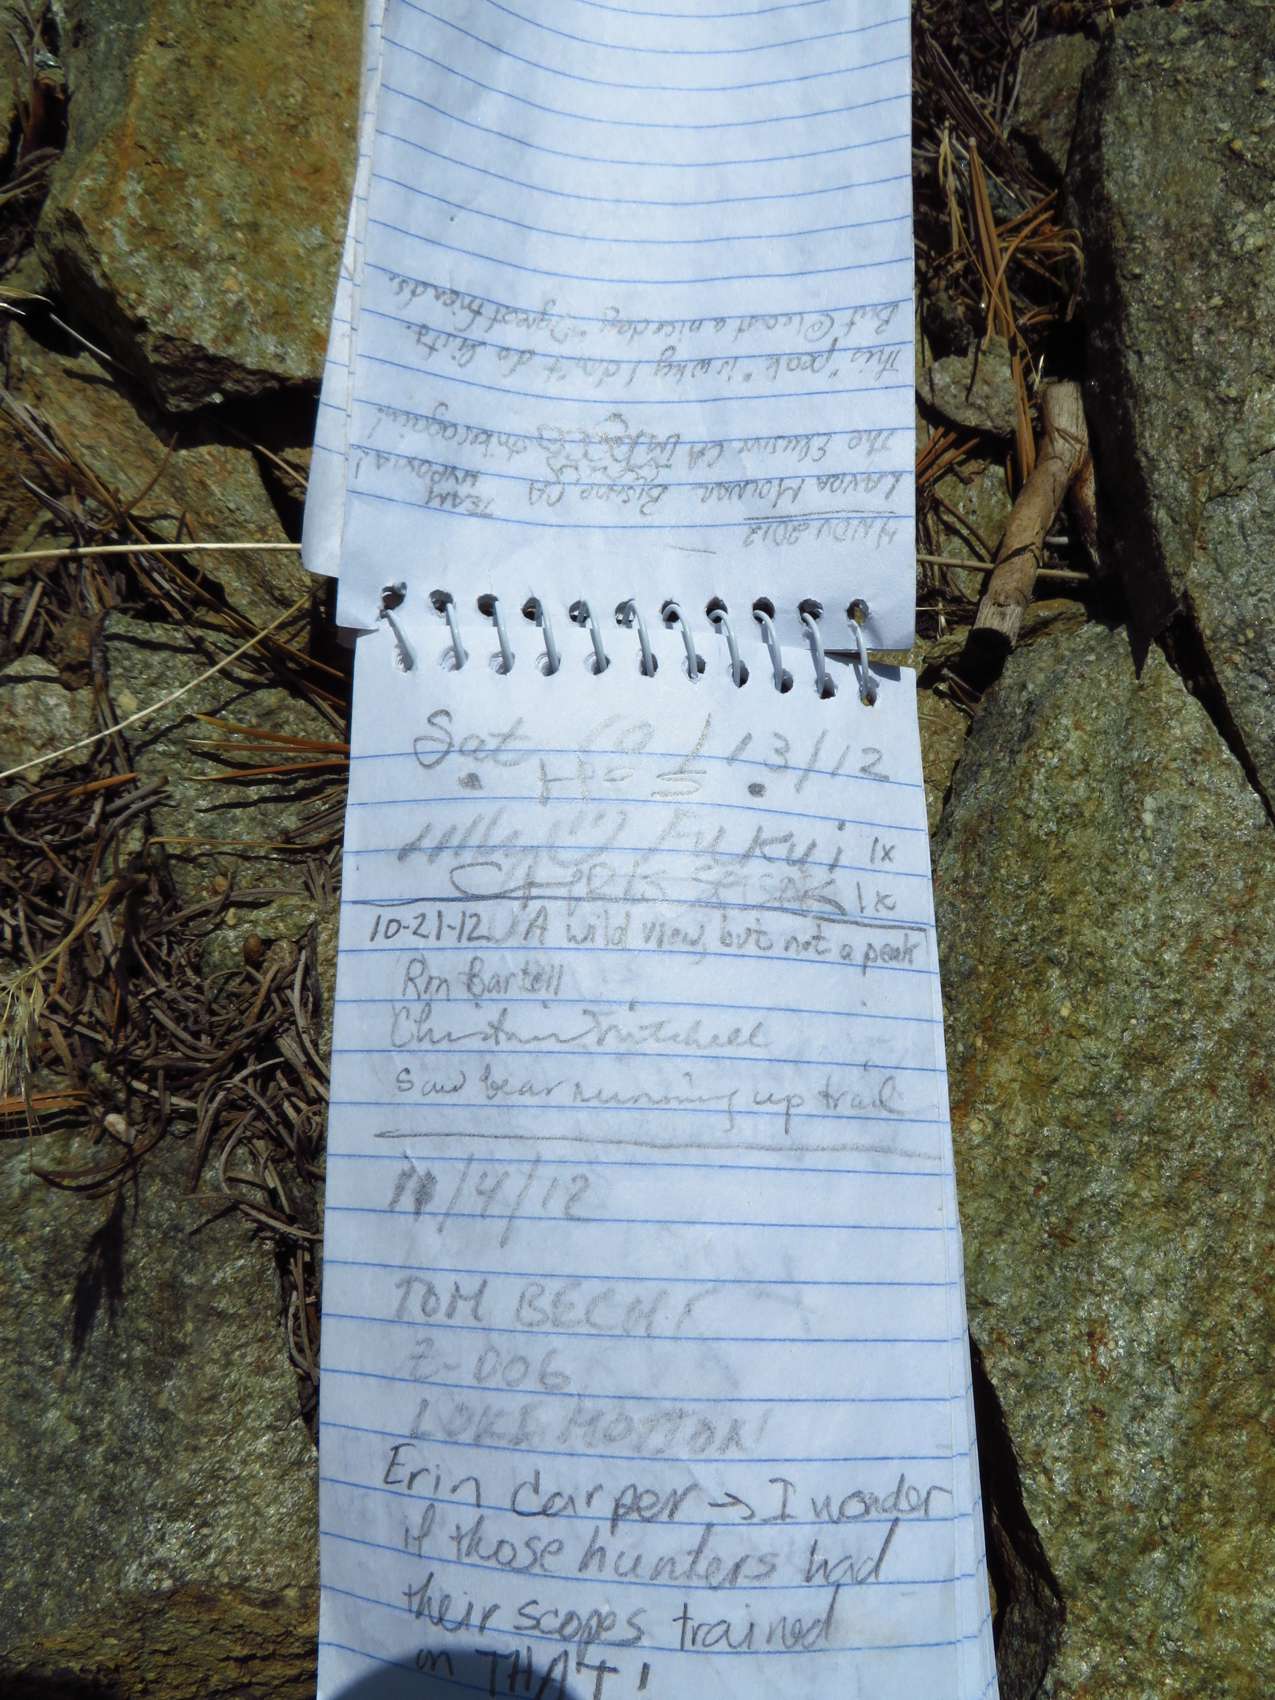 4 NOV 2012
LAURA MOLNAR BISHOP, CA TEAM HYPOXIA!
The Elusive CA strikes again!
This "peak" is why I don't do lists.
But @ least a nice day & great friends.
Sat 10/13/12
Fukui 1x
CHRIS 1x
10-21-12 A wild view, but not a peak
Ron Bartell
Christine Mitchell
saw bear running up trail
11/4/12
TOM BECHT
Z-DOG
LOKI MOTION
Erin Carper → I wonder
if those hunters had
their scopes trained
on THAT!